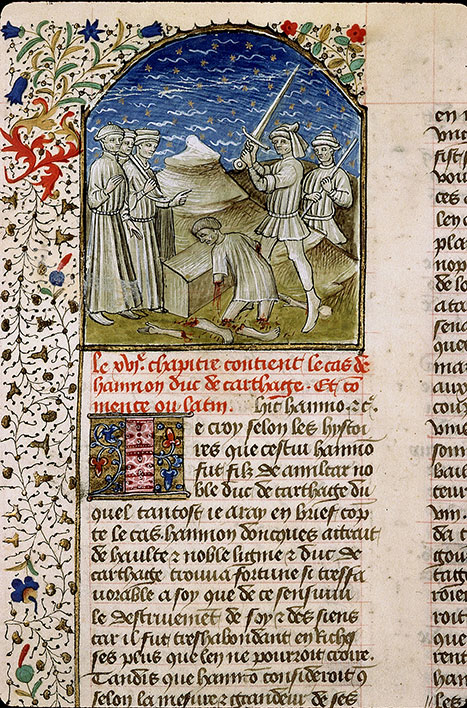 Le xviͤ. chapitre contient le cas de
hannon duc de carthage. Et co
mence ou latin. hic hanno. ⁊cͣ.
Je croy selon les hystoi
res que cestui hanno
fut filz de amilcar no
ble duc de carthage du
quel tantost ie aray en brief cop
te le cas. hannon doncques attrait
de haulte ⁊ noble lignie ⁊ duc de
carthage trouua fortune si tresfa
uorable a soy que de ce sensuiui
le destruiement de soy ⁊ des siens
car il fut treshabondant en riches
ses plus que len ne pourroit croire.
Tandis que hanno consideroit
selon la mesure ⁊ grandeur de ses
en
sist
vou
ces
de
pla
nop
de lo
sen
que
ma
aux
cou
som
hau
tout
vin.
da
tag
roie
roit
que
ren
han
les